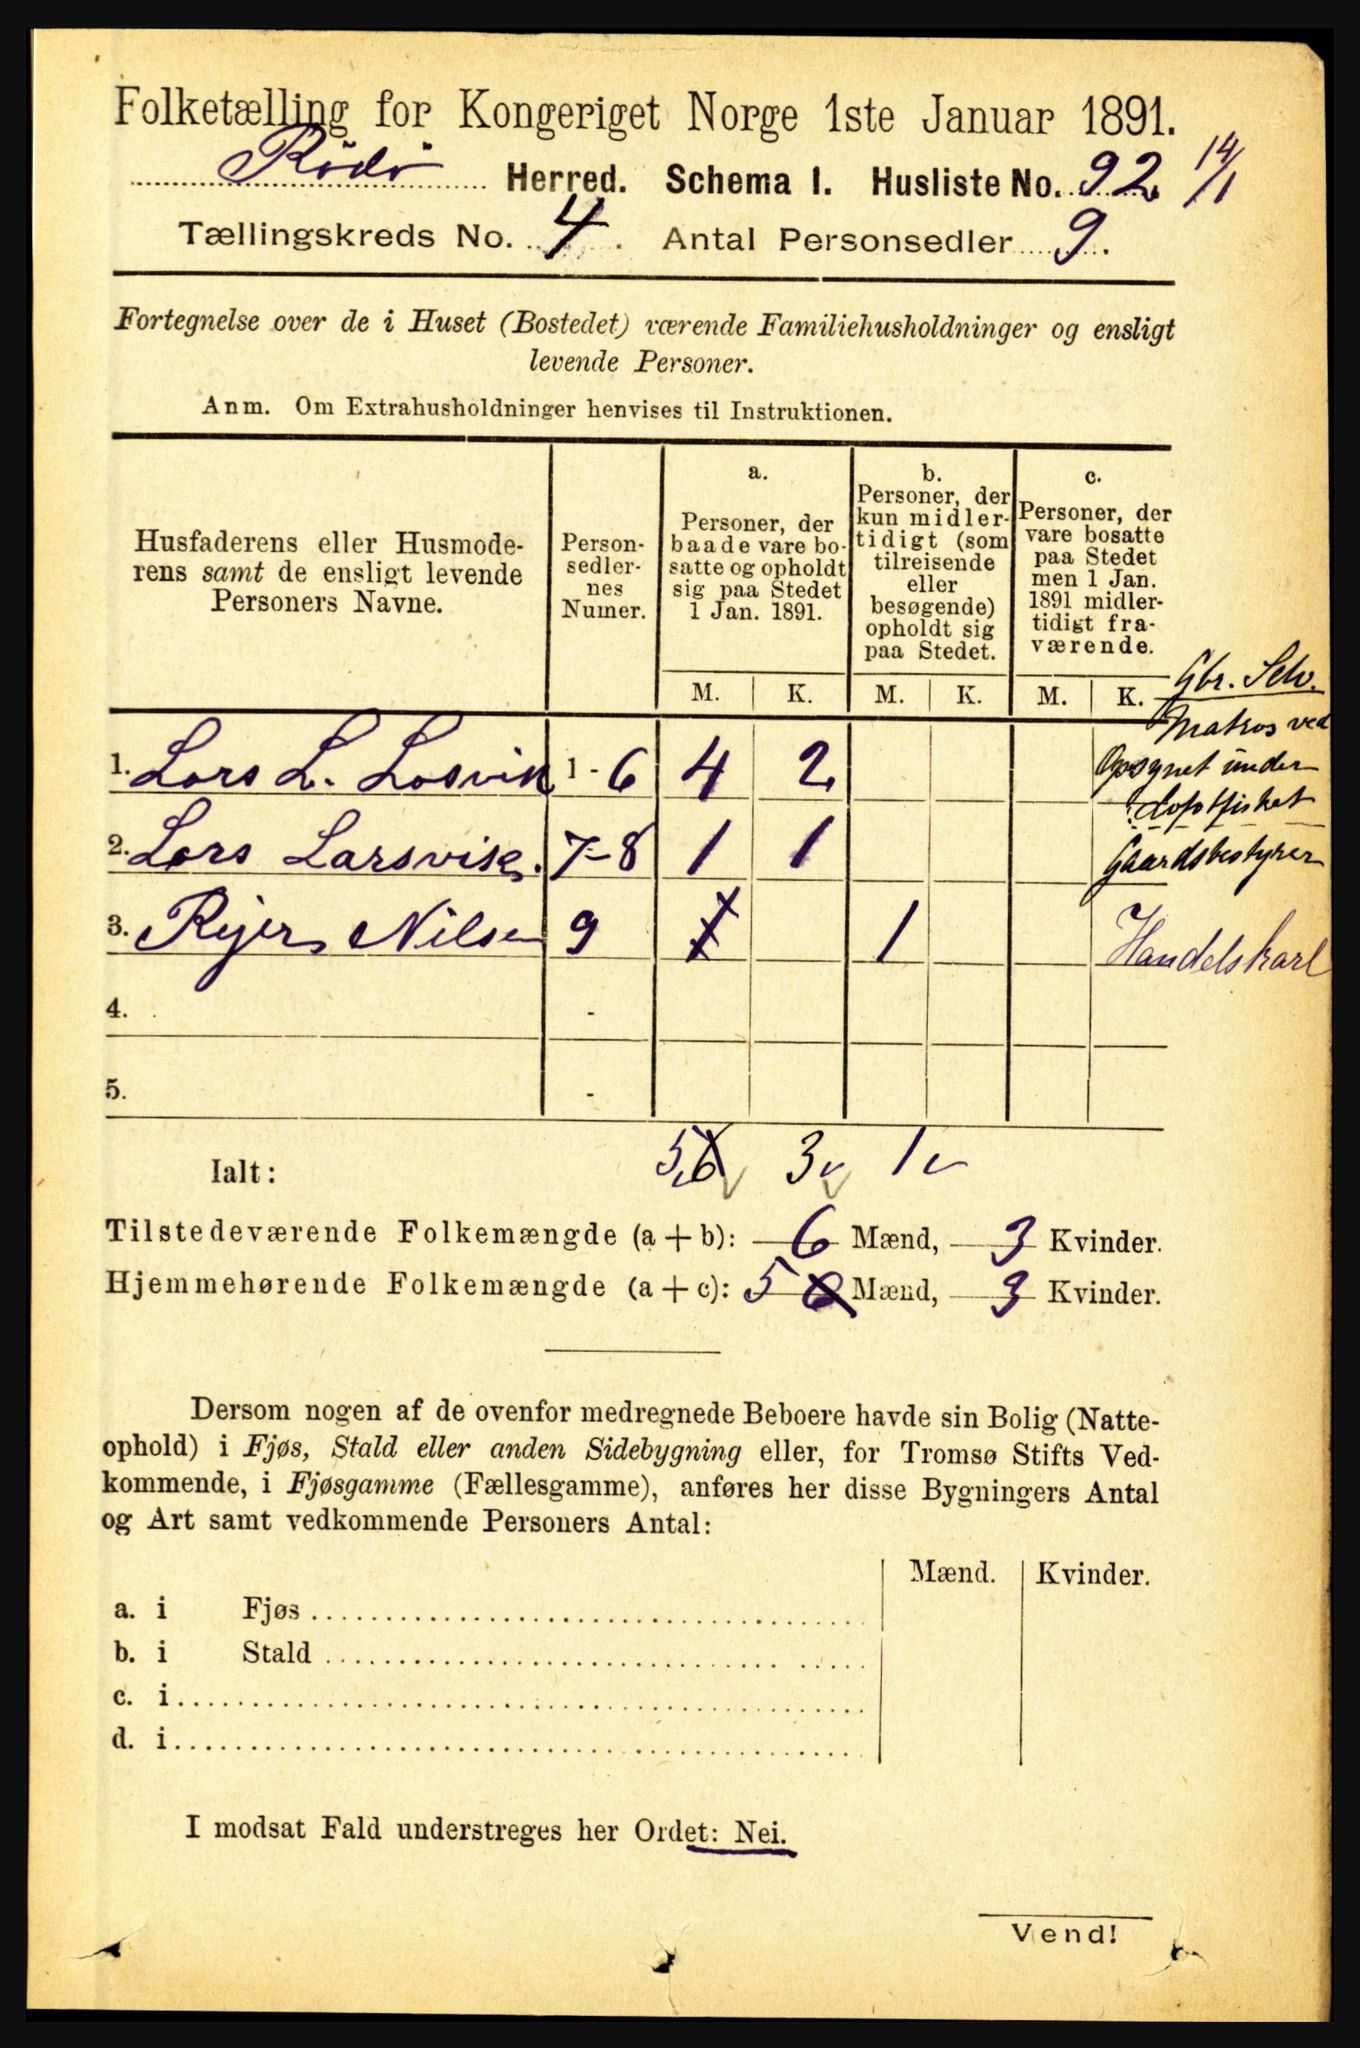 Folketælling for Kongeriget Norge 1ste Januar 1891.
Rödö Herred. Schema I. Husliste No. 92 14/1
Tællingskreds No. 4. Antal Personsedler 9.
Fortegnelse over de i Huset (Bostedet) værende Familiehusholdninger og ensligt
levende Personer.
Anm. Om Extrahusholdninger henvises til Instruktionen.
Husfaderens eller Husmode-
rens samt de ensligt levende
Personers Navne.
Person-
sedler-
nes
Numer.
a.
Personer, der
baade vare bo-
satte og opholdt
sig paa Stedet
1 Jan. 1891.
b.
Personer, der
kun midler-
tidigt (som
tilreisende
eller
besøgende)
opholdt sig
paa Stedet.
c.
Personer, der
vare bosatte
paa Stedet
men 1 Jan.
1891 midler-
tidigt fra-
værende.
M. K. M. K. M. K.
Gbr. Selv.
Matros ved
1. Lars L. Losvik 1 - 6 4 2 Opsynet under
Lofotfisket
2. Lars Larsvik. 7-8 1 1 Gaardsbestyrer
3. Rejer Nilsen 9 1 1 Handelskarl
4. -
5. -
Ialt: 5 6 3 1
Tilstedeværende Folkemængde (a + b): 6 Mænd, 3 Kvinder.
Hjemmehørende Folkemængde (a + c): 5 6 Mænd, 3 Kvinder.
Dersom nogen af de ovenfor medregnede Beboere havde sin Bolig (Natte-
ophold) i Fjøs, Stald eller anden Sidebygning eller, for Tromsø Stifts Ved-
kommende, i Fjøsgamme (Fællesgamme), anføres her disse Bygningers Antal
og Art samt vedkommende Personers Antal:
Mænd. Kvinder.
a. i Fjøs
b. i Stald
c. i
d. i
I modsat Fald understreges her Ordet: Nei.
Vend!